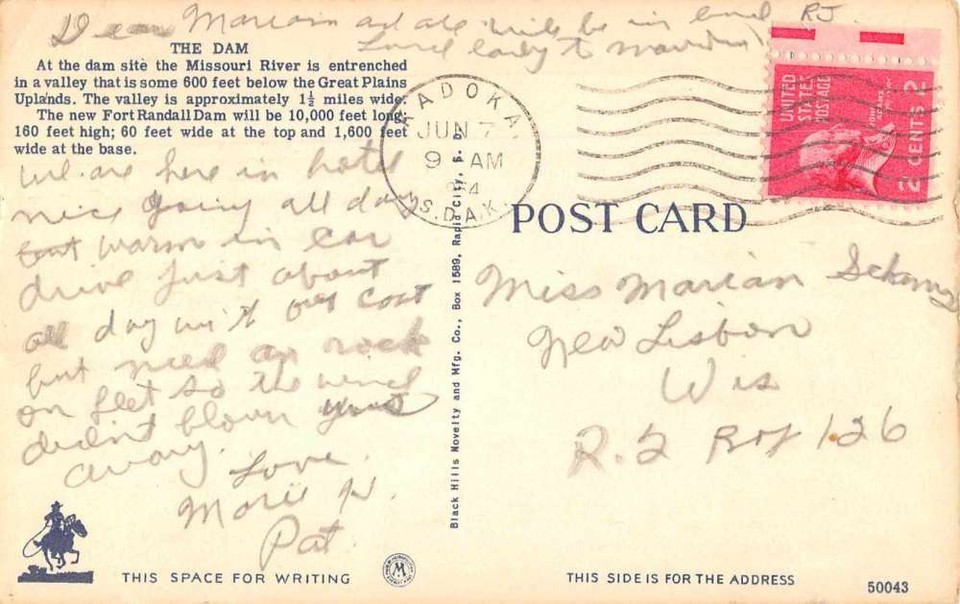 Dear Marian and all will be in
RJ
THE DAM
At the dam site the Missouri River is entrenched
in a valley that is some 600 feet below the Great Plains
Uplands. The valley is approximately 1½ miles wide.
The new Fort Randall Dam will be 10,000 feet long;
160 feet high; 60 feet wide at the top and 1,600 feet
wide at the base.
We are here in hotel
nice going all day
but warm in car
drive just about
all day with our coat
but need an rock
on feet so the wind
didn't blown
away.
Love
Marie
Pat
THIS SPACE FOR WRITING
Black Hills Novelty and Mfg. Co., Box 1589, Rapid City, S. D.
KADOKA
JUN 7
9 AM
S.DAK.
UNITED
STATES
POSTAGE
2 CENTS 2
POST CARD
Miss Marian
New Lisbon
Wis
R.2 Box 126
THIS SIDE IS FOR THE ADDRESS
50043